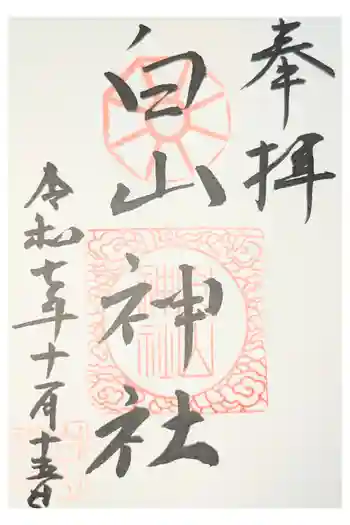 奉拝
白山神社
令和七年十一月十五日